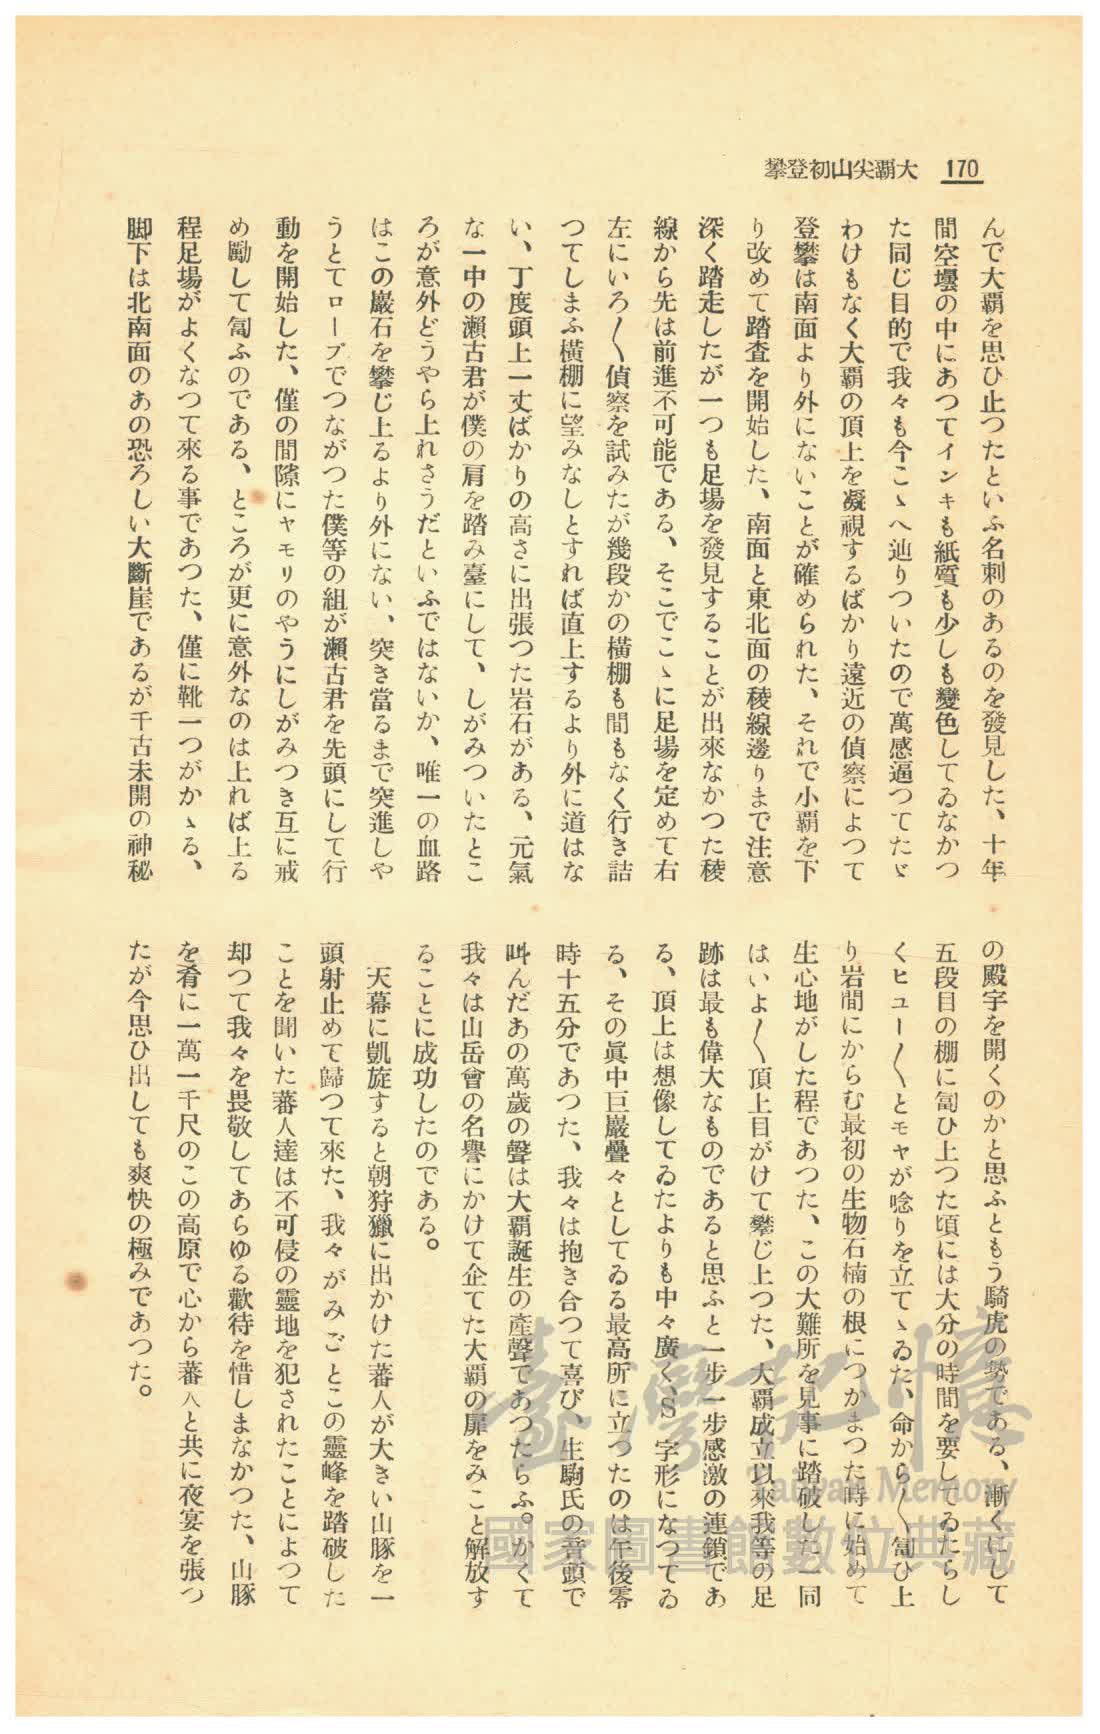 170 大覇尖山初登攀
んで大覇を思ひ止つたといふ名刺のあるのを發見した、十年
間空壜の中にあつてインキも紙質も少しも變色してゐなかつ
た同じ目的で我々も今こゝへ辿りついたので萬感逼つてたゞ
わけもなく大覇の頂上を凝視するばかり遠近の偵察によつて
登攀は南面より外にないことが確められた、それで小覇を下
り改めて踏査を開始した、南面と東北面の稜線邊りまで注意
深く踏走したが一つも足場を發見することが出來なかつた稜
線から先は前進不可能である、そこでこゝに足場を定めて右
左にいろ〳〵偵察を試みたが幾段かの橫棚も間もなく行き詰
つてしまふ橫棚に望みなしとすれば直上するより外に道はな
い、丁度頭上一丈ばかりの高さに出張つた岩石がある、元氣
な一中の瀨古君が僕の肩を踏み臺にして、しがみついたとこ
ろが意外どうやら上れさうだといふではないか、唯一の血路
はこの巖石を攀じ上るより外にない、突き當るまで突進しや
うとてロープでつながつた僕等の組が瀨古君を先頭にして行
動を開始した、僅の間隙にヤモリのやうにしがみつき互に戒
め勵して匐ふのである、ところが更に意外なのは上れば上る
程足場がよくなつて來る事であつた、僅に靴一つがかゝる、
脚下は北南面のあの恐ろしい大斷崖であるが千古未開の神秘
の殿宇を開くのかと思ふともう騎虎の勢である、漸くにして
五段目の棚に匐ひ上つた頃には大分の時間を要してゐたらし
くヒユー〳〵とモヤが唸りを立てゝゐた、命から〴〵匐ひ上
り岩間にからむ最初の生物石楠の根につかまつた時に始めて
生心地がした程であつた、この大難所を見事に踏破した一同
はいよ〳〵頂上目がけて攀じ上つた、大覇成立以來我等の足
跡は最も偉大なものであると思ふと一步一步感激の連鎖であ
る、頂上は想像してゐたよりも中々廣く、S字形になつてゐ
る、その眞中巨巖疊々としてゐる最高所に立つたのは午後零
時十五分であつた、我々は抱き合つて喜び、生駒氏の音頭で
叫んだあの萬歲の聲は大覇誕生の產聲であつたらふ。かくて
我々は山岳會の名譽にかけて企てた大覇の扉をみごと解放す
ることに成功したのである。
天幕に凱旋すると朝狩獵に出かけた蕃人が大きい山豚を一
頭射止めて歸つて來た、我々がみごとこの靈峰を踏破した
ことを聞いた蕃人達は不可侵の靈地を犯されたことによつて
却つて我々を畏敬してあらゆる歡待を惜しまなかつた、山豚
を肴に一萬一千尺のこの高原で心から蕃人と共に夜宴を張つ
たが今思ひ出しても爽快の極みであつた。
臺灣記憶
Taiwan Memory
國家圖書館數位典藏